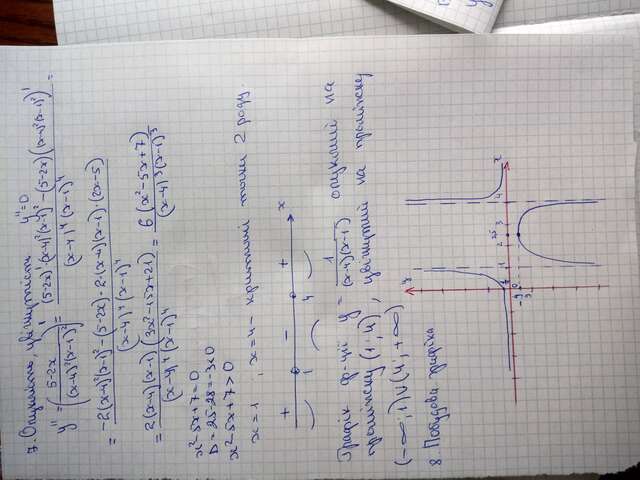 7. Опуклость, увігнутість y''=0
y'' = (5-2x / (x-4)²(x-1)²)' = (5-2x)'·(x-4)²(x-1)² - (5-2x)((x-4)²(x-1)²)' / (x-4)⁴(x-1)⁴ =
= -2(x-4)²(x-1)² - (5-2x)·2·(x-4)(x-1)·(2x-5) / (x-4)⁴(x-1)⁴
= 2(x-4)(x-1)(3x²-15x+21) / (x-4)⁴(x-1)⁴ = 6(x²-5x+7) / (x-4)³(x-1)³
x²-5x+7=0
D = 25-28 = -3<0
x²-5x+7>0
x=1, x=4 - критичні точки 2 роду.
+ - +
1 4 x
Графік ф-ції y = 1 / (x-4)(x-1) опуклий на
проміжку (1;4), увігнутий на проміжку
(-∞;1)∪(4;+∞)
8. Побудова графіка
y
x
1 2 3 4